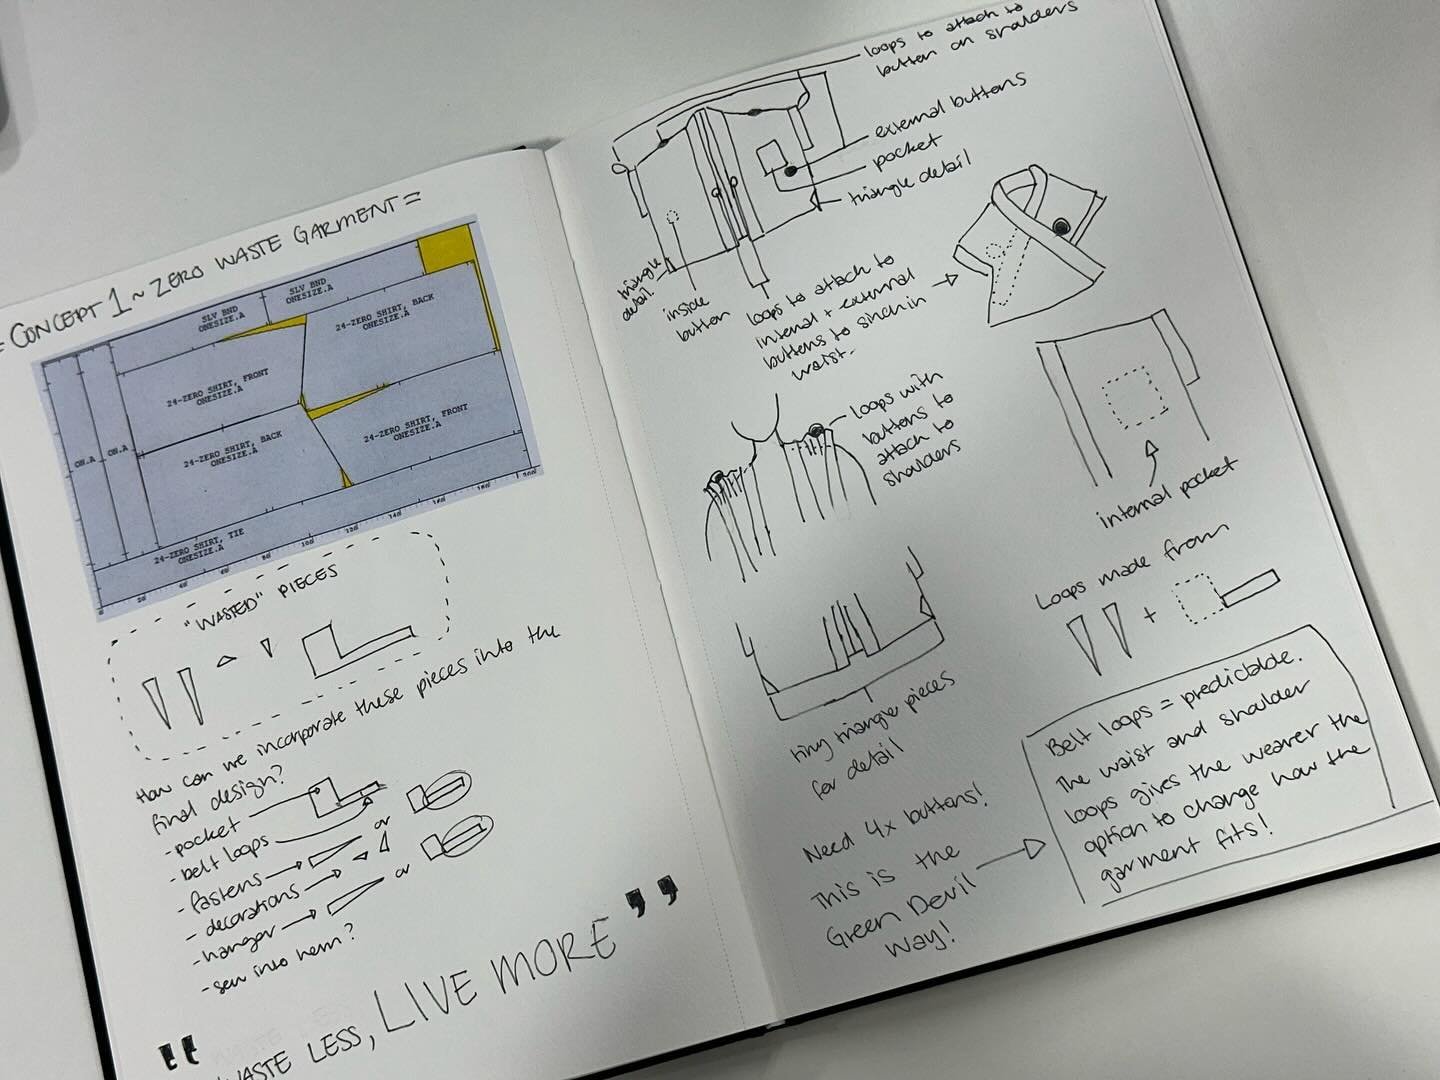 = CONCEPT 1 ~ ZERO WASTE GARMENT =
SLV BND
ONESIZE.A
SLV BND
ONESIZE.A
24-ZERO SHIRT, BACK
ONESIZE.A
24-ZERO SHIRT, FRONT
ONESIZE.A
ON.A
ON.A
24-ZERO SHIRT, BACK
ONESIZE.A
24-ZERO SHIRT, FRONT
ONESIZE.A
24-ZERO SHIRT, TIE
ONESIZE.A
0 20 40 60 80 100 120 140 160 180 200
"WASTED" PIECES
How can we incorporate these pieces into the
final design?
- pocket
- belt loops
- fastens or
- decorations
- hanger or
- sew into hem?
"WASTE LESS, LIVE MORE"
loops to attach to
button on shoulders
external buttons
pocket
triangle detail
triangle
detail
inside
button
loops to attach to
internal + external
buttons to sinch in
waist.
loops with
buttons to
attach to
shoulders
internal pocket
tiny triangle pieces
for detail
Loops made from
+
Need 4x buttons!
This is the
Green Devil
Way!
Belt loops = predictable.
The waist and shoulder
loops gives the wearer the
option to change how the
garment fits!